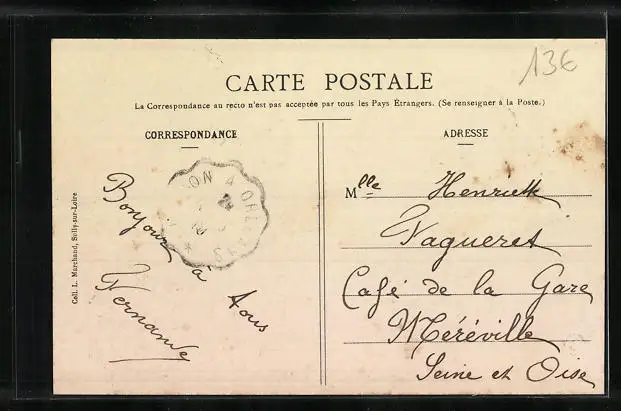 13€
CARTE POSTALE
La Correspondance au recto n'est pas acceptée par tous les Pays Étrangers. (Se renseigner à la Poste.)
CORRESPONDANCE
ADRESSE
Bonjour à tous
Fernande
Mlle Henriette
Vagueret
Café de la Gare
Méréville
Seine et Oise
Coll. L. Marchand, Sully-sur-Loire